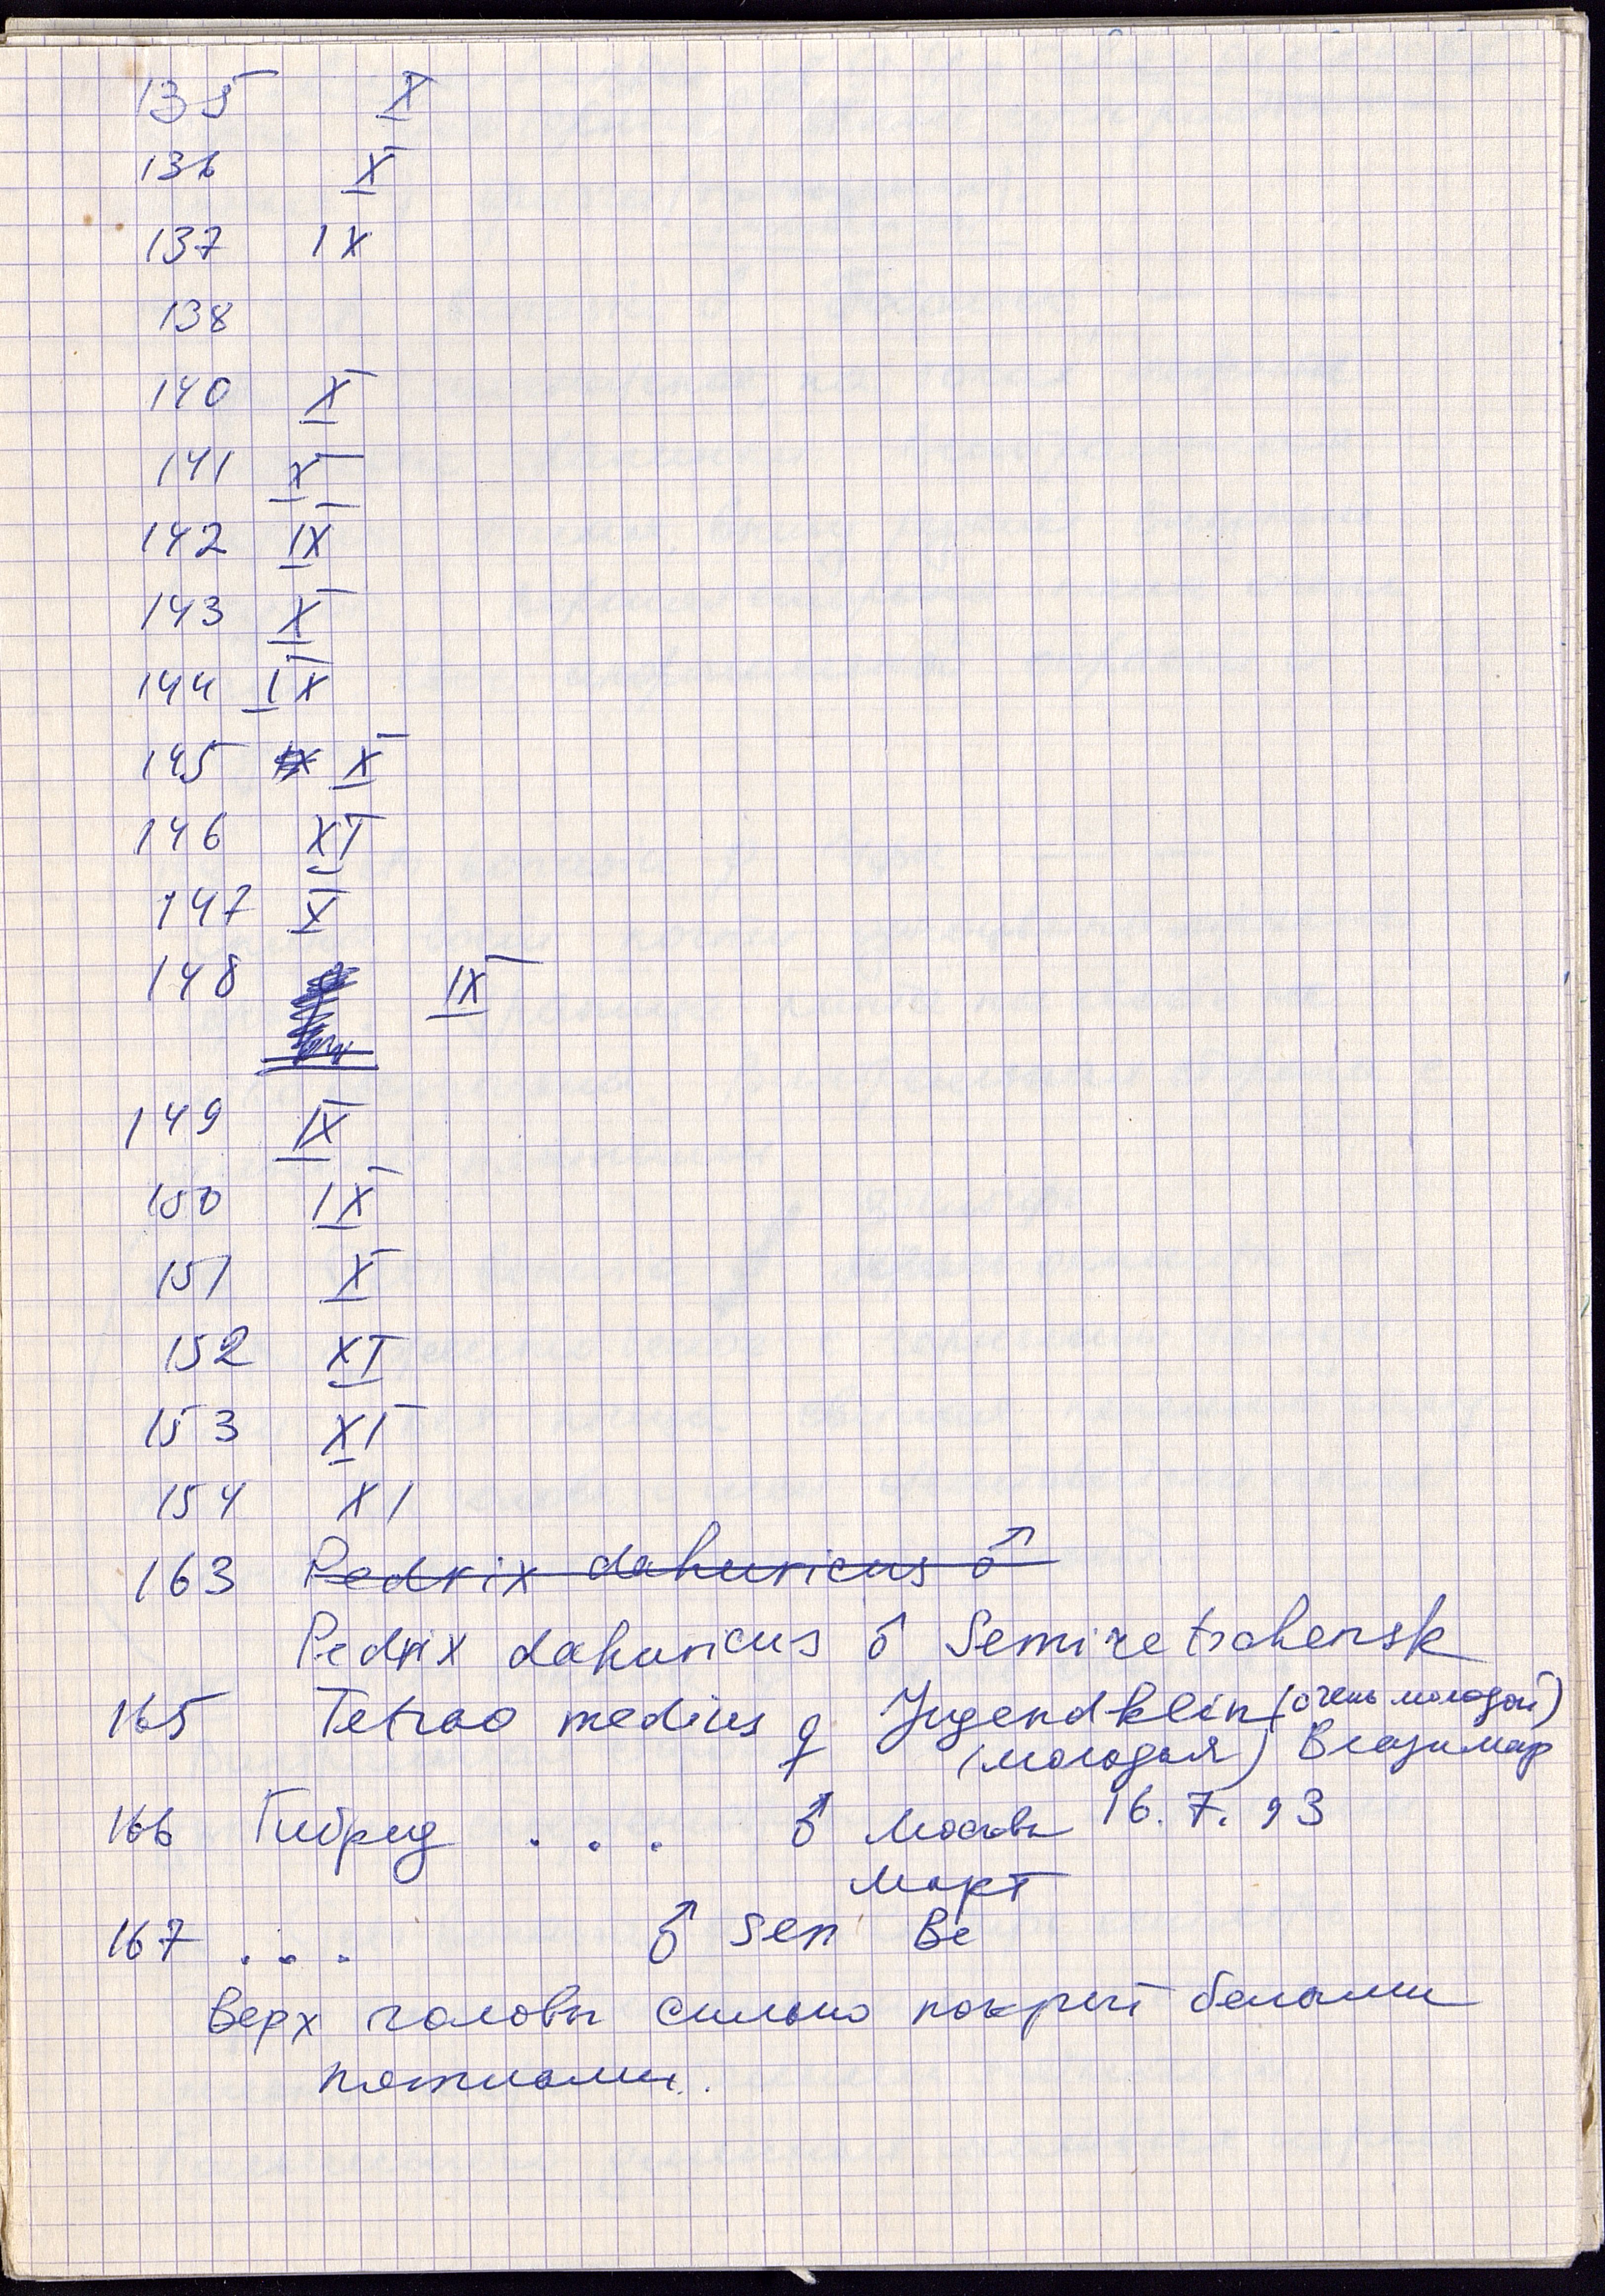 135 X
136 X
137 IX
138
140 X
141 X
142 IX
143 X
144 IX
145 X
146 XI
147 X
148 IX
149 IX
150 IX
151 X
152 XI
153 XI
154 XI
163 Pedrix dahuricus ♂
Pedrix dahuricus ♂ Semiretschensk
165 Tetrao medius ♀ Jugendklein (очень молодой)
(молодая) Владимир
166 Гибрид . . . ♂ Москва 16.7.93
март
167 . . . ♂ sen Ве
Верх головы сильно покрыт белыми
пятнами.